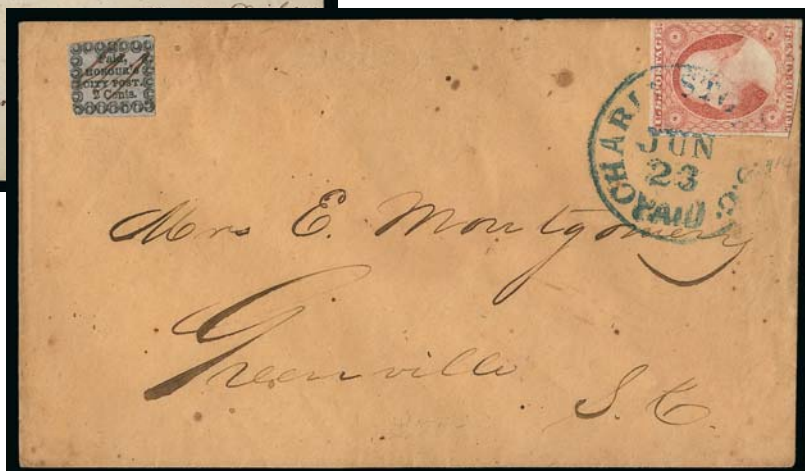 Paid,
HONOUR'S
CITY POST.
2 Cents.
CHARLESTON S.C.
JUN
23
PAID
Mrs E. Montgomery
Greenville
S. C.